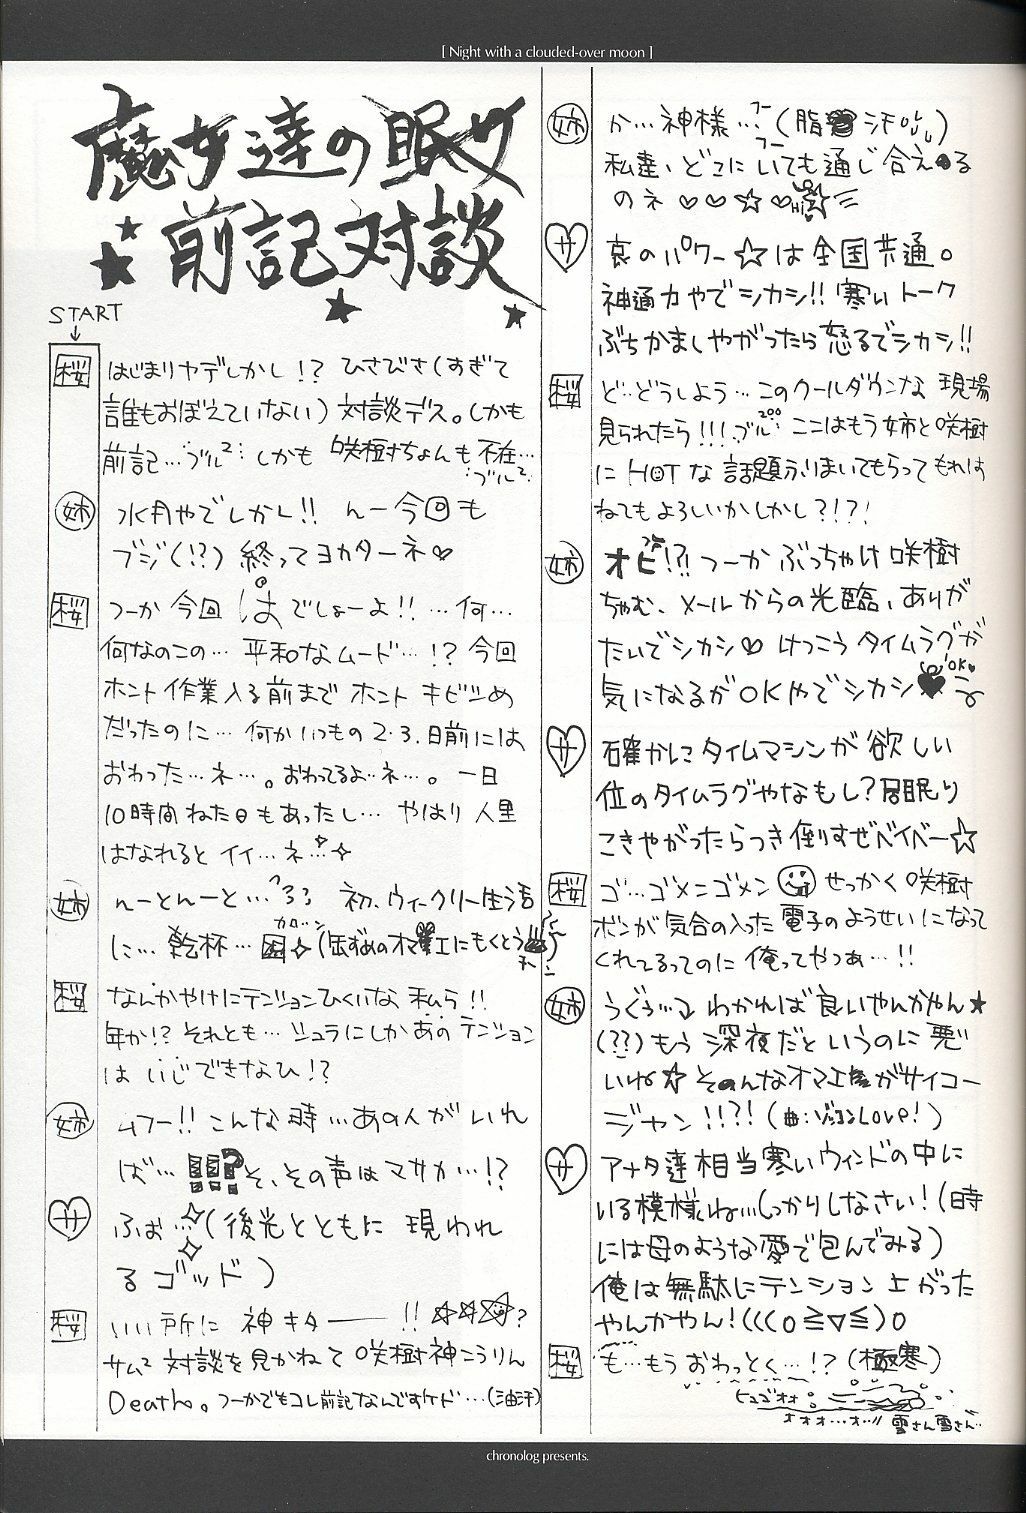 [ Night with a clouded-over moon ]
魔女達の眠り
前記対談
START
桜 はじまりヤデしかし!? ひさびさ(すぎて
誰もおぼえていない) 対談デス。しかも
前記… ブル² しかも 咲樹ちょんも不在…
ブル²
姉 水月やでしかし!! んー今回も
ブジ(!?) 終ってヨカターネ♡
桜 つーか 今回 は でしょーよ!! …何…
何なのこの… 平和なムード…!? 今回
ホント作業入る前まで ホント キビシめ
だったのに… 何かいつもの2・3.日前には
おわった…ネ…。おわってるよ…ネ…。一日
10時間ねた日もあったし… やはり 人里
はなれると イイ…ネ…
姉 んーとんーと… 初、ウィークリー生活
に… 乾杯…
桜 なんかやけにテンションひくいな 私ら!!
年か!? それとも… シュラにしかあの テンション
は いじできなひ!?
姉 ムフー!! こんな時…あの人がいれ
ば… !!!? そ、その声はマサカ…!?
サ ふぉ…(後光とともに 現われ
るゴッド)
桜 いい所に 神キター―― !! ☆☆☆?
サム² 対談を見かねて 咲樹神こうりん
Death。つーかでもコレ前記なんですケド…(油汗)
姉 か…神様…(脂 汗)
フー
フー
私達、どこにいても通じ合える
のネ ♡♡☆♡
Hi
サ 哀のパワー☆は全国共通。
神通力やでシカシ!! 寒いトーク
ぶちかましやがったら怒るでシカシ!!
桜 ど…どうしよう… このクールダウンな 現場
見られたら!!! ブル… ここはもう姉と咲樹
に HOTな 話題ふりまいてもらって もれは
ねてもよろしいかしかし?!?!
姉 オビ!?! つーか ぶっちゃけ 咲樹
ちゃむ、メールからの光臨、ありが
たいでシカシ♡ けっこうタイムラグが
気になるが OKやでシカシ♥
OK♥
サ 確かにタイムマシンが欲しい
位のタイムラグやなもし? 居眠り
こきやがったらつき倒すぜベイベー☆
桜 ゴ…ゴメンゴメン せっかく 咲樹
ボンが気合の入った 電子のようせいになって
くれてるってのに 俺ってやつぁ…!!
姉 うぐぅ… わかれば良いやんかやん★
(??)もう 深夜だと いうのに 悪
いね☆ そのんなオマエがサイコー
ジャン!!?! (
LOVE!)
サ アナタ達相当寒いウィンドの中に
いる模様ね…しっかりしなさい!(時
には母のような愛で包んでみる)
俺は無駄にテンション上がった
やんかやん!(((o≧▽≦)o
桜 も…もうおわっとく…!? (極寒)
ヒュゴオオ
オオオ…オ…!! 雪さん雪さん…
chronolog presents.